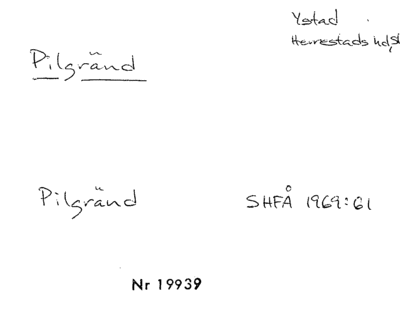 Ystad
Herrestads hd, Sk
Pilgränd
Pilgränd SHFÅ 1969:61
Nr 19939